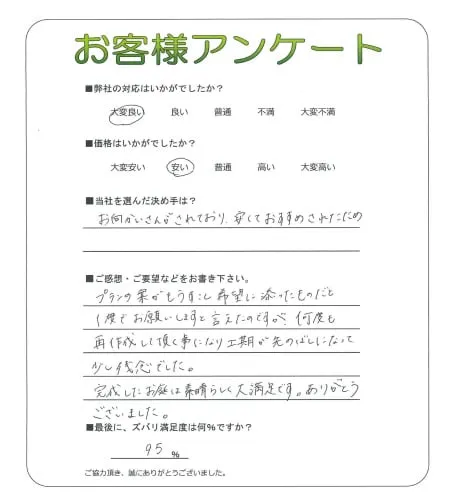 お客様アンケート
■弊社の対応はいかがでしたか？
大変良い　良い　普通　不満　大変不満
■価格はいかがでしたか？
大変安い　安い　普通　高い　大変高い
■当社を選んだ決め手は？
お向かいさんがされており、安くておすすめされたため
■ご感想・ご要望などをお書き下さい。
プランの案がもう少し希望に添ったものだと
1度でお願いしますと言えたのですが、何度も
再作成して頂く事になり工期が先のばしになって
少し残念でした。
完成したお庭は素晴らしく大満足です。ありがとう
ございました。
■最後に、ズバリ満足度は何％ですか？
95 ％
ご協力頂き、誠にありがとうございました。